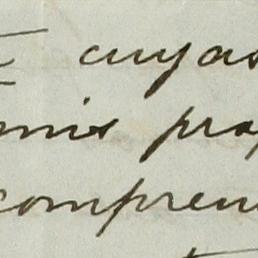 cuyas
mis prop
compren